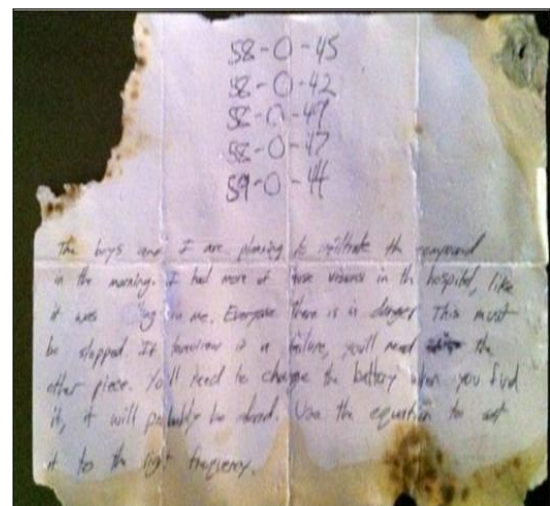 58-0-45
58-0-42
58-0-49
58-0-47
59-0-44
The boys and I are planning to infiltrate the compound
in the morning. I had more of those visions in th hospital, like
it was to me. Everyone there is in danger This must
be stopped. If tomorrow is a failure, you'll need the
other piece. You'll need to change the battery when you find
it, it will probably be dead. Use the equation to set
it to the light frequency.